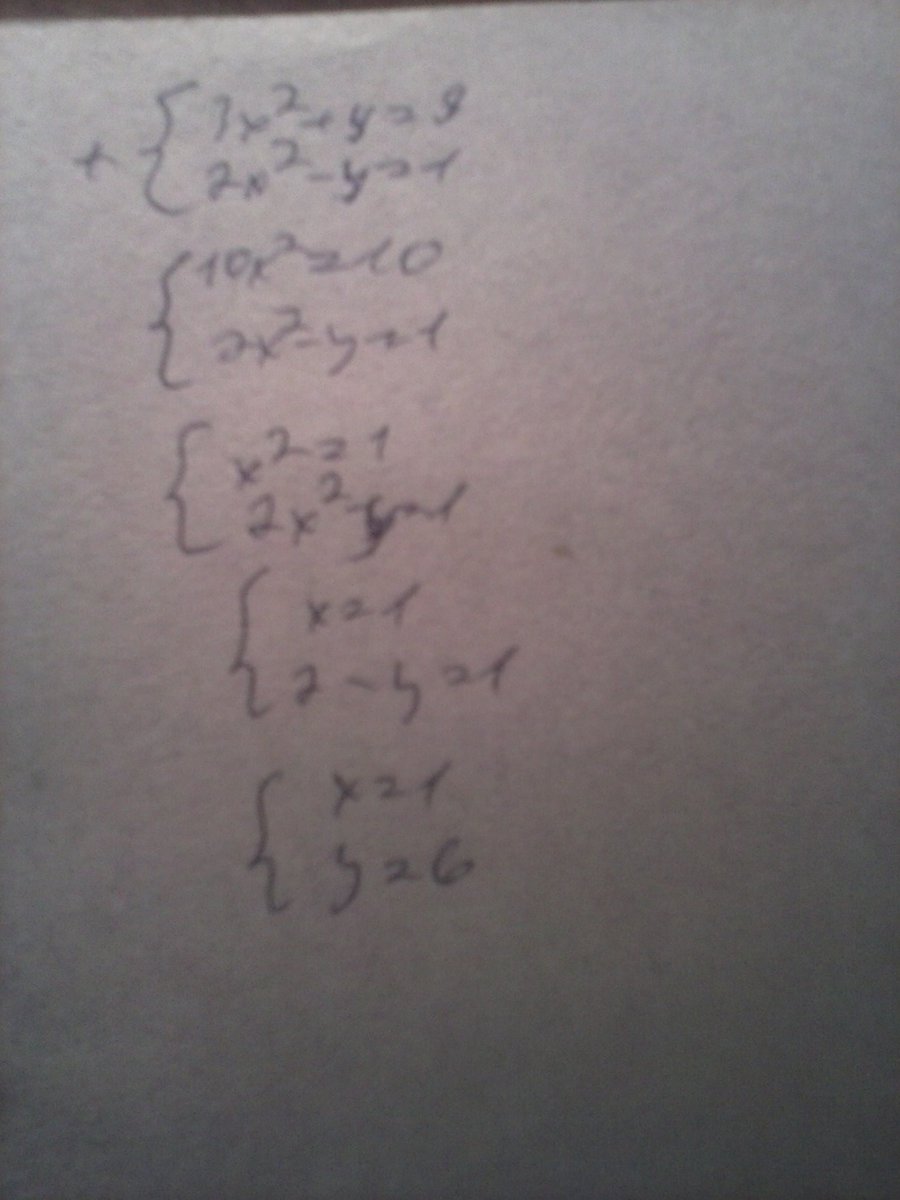 + { 3x²+y=9
7x²-y=1
{ 10x²=10
7x²-y=1
{ x²=1
7x²-y=1
{ x=1
7-y=1
{ x=1
y=6